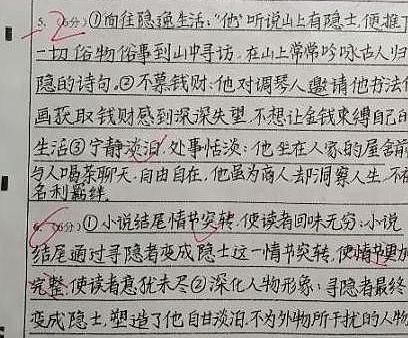 5. (6分) ①向往隐逸生活:“他”听说山上有隐士,便推了
一切俗物俗事到山中寻访,在山上常常吟咏古人归
隐的诗句。②不慕钱财:他对调琴人邀请他书法
画获取钱财感到深深失望,不想让金钱束缚自己的
生活③宁静淡泊,处事恬淡:他坐在人家的屋舍前
与人喝茶聊天,自由自在,他虽为商人却洞察人生,不
名利羁绊。
6. (6分) ①小说结尾情节突转,使读者回味无穷:小说
结尾通过寻隐者变成隐士这一情节突转,使情节更加
完整,使读者意犹未尽②深化人物形象:寻隐者最终
变成隐士,塑造了他自甘淡泊,不为外物所干扰的人物
-2
6